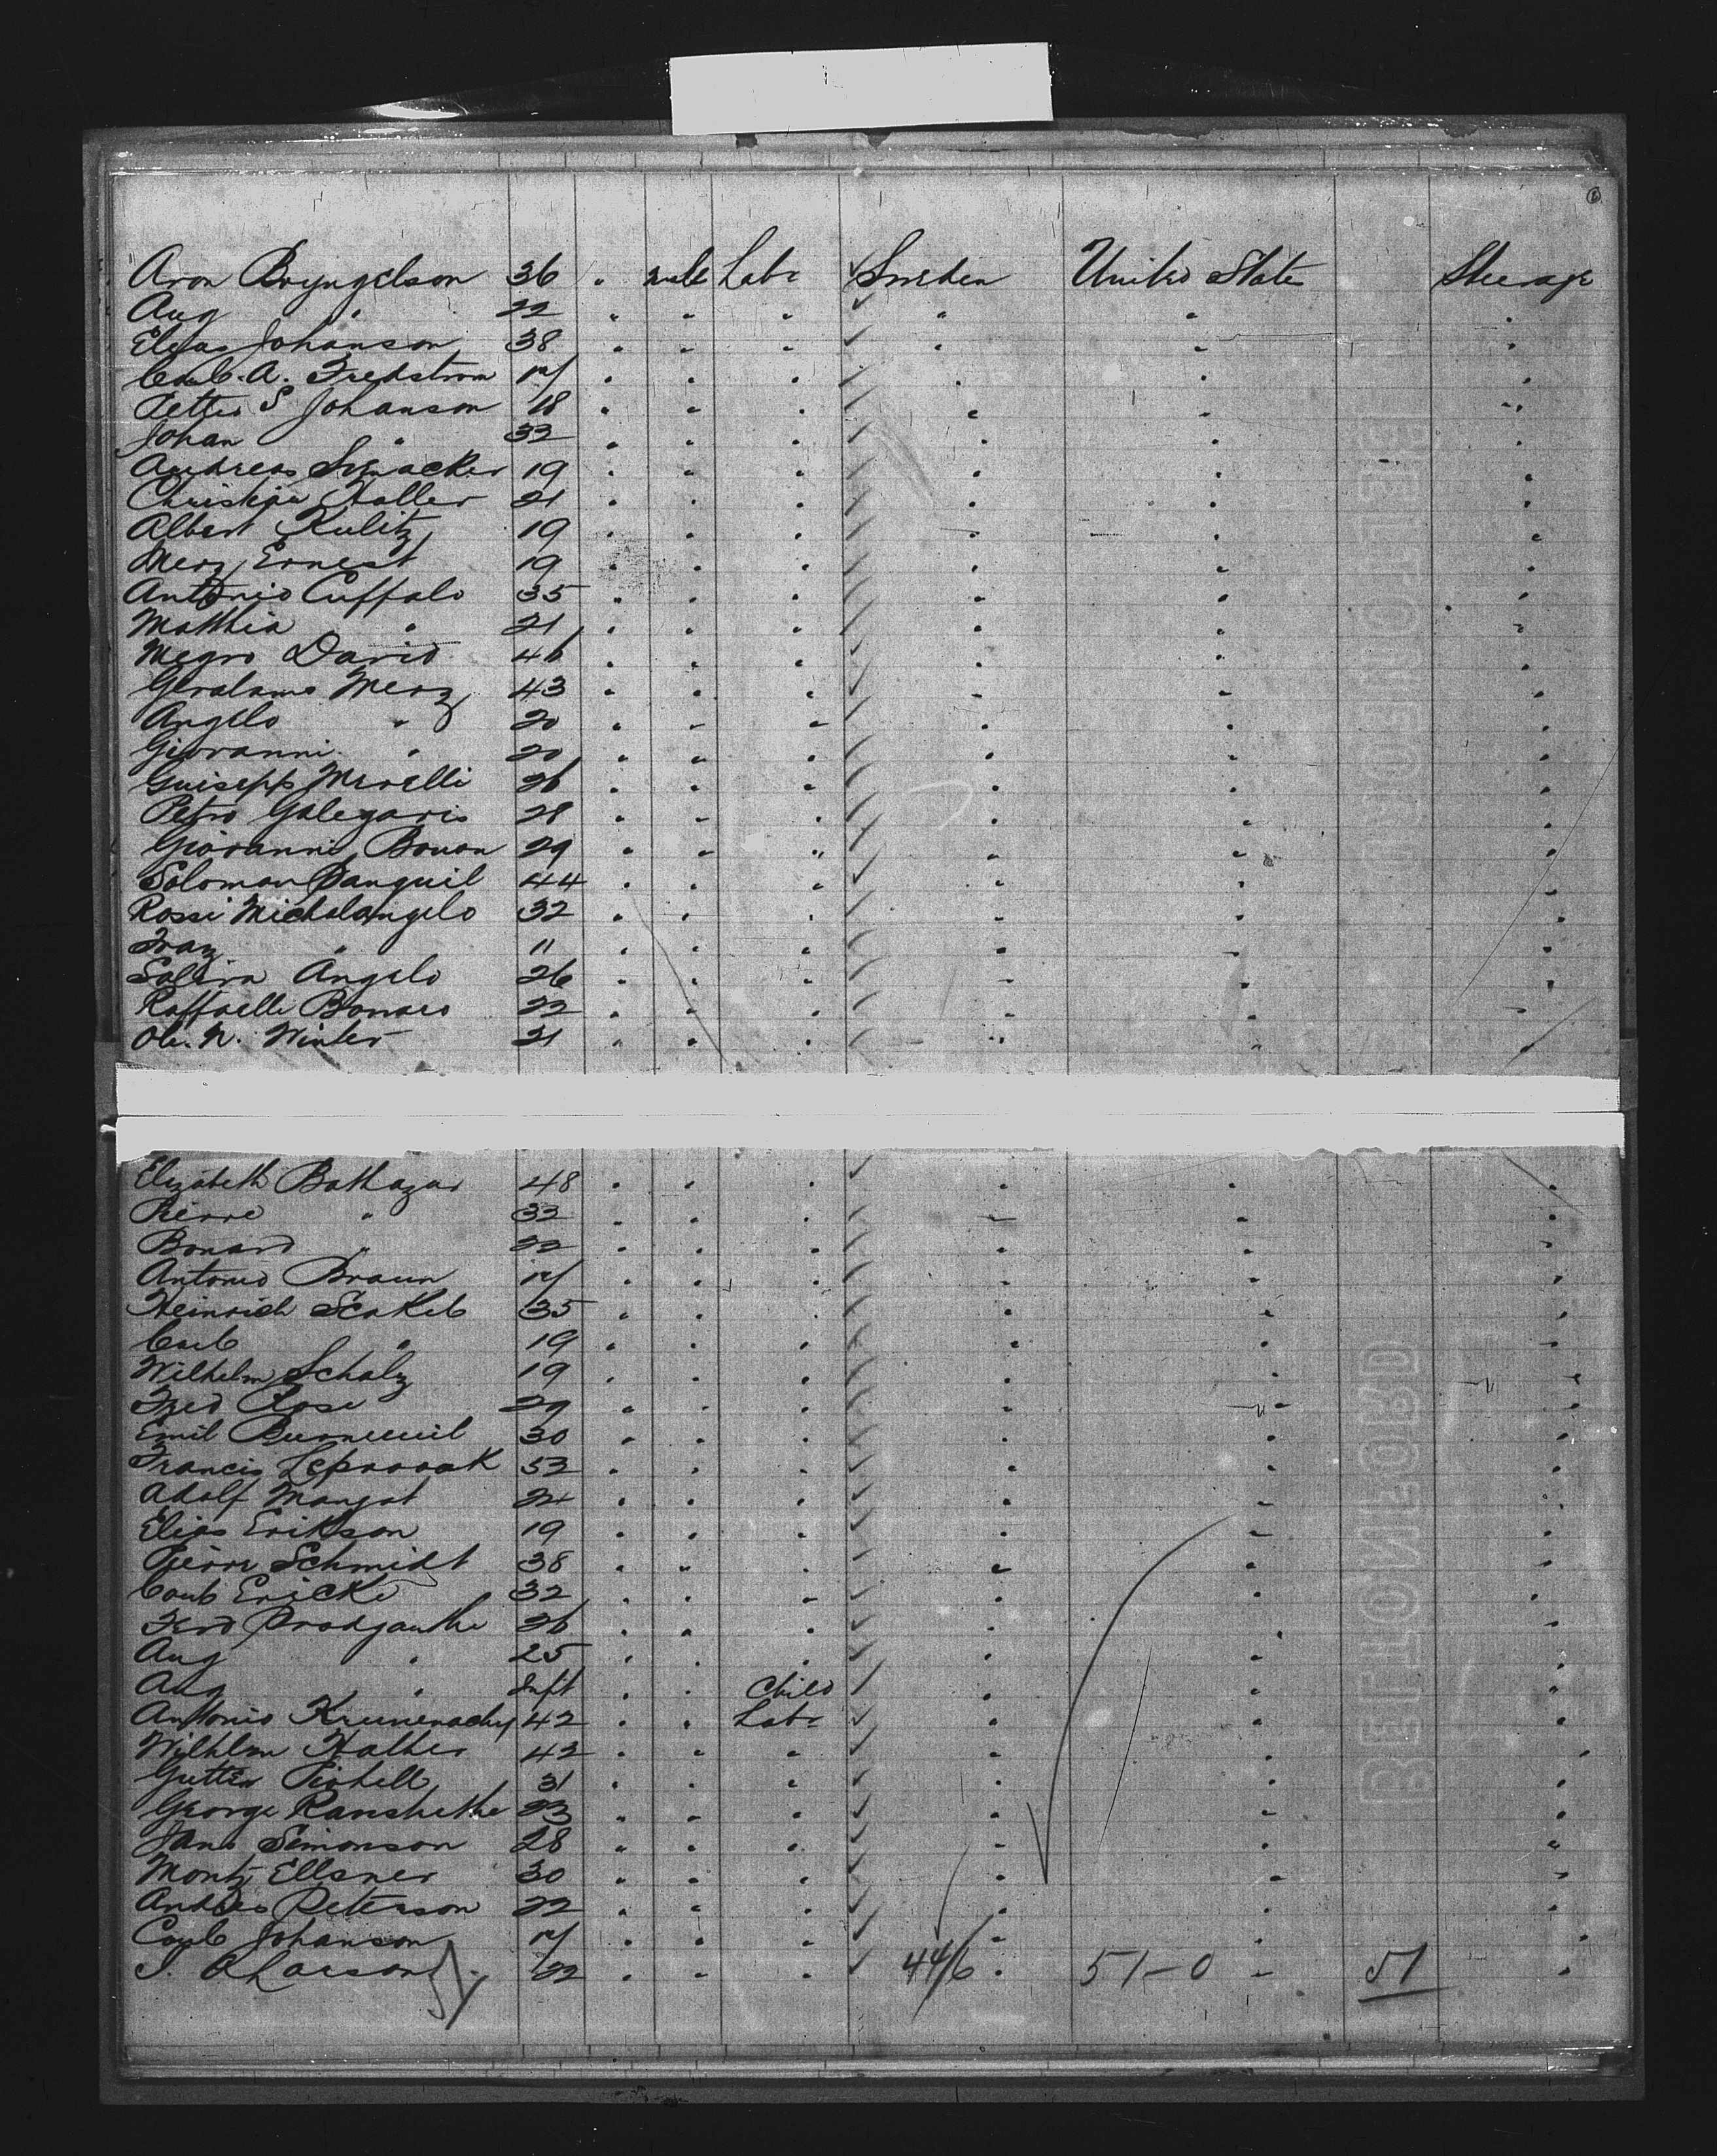 Aron Bryngelson 36 " male Labr Sweden United State Steerage
Aug " 22 " " " " " "
Elias Johanson 38 " " " " " "
Carl. A. Fredstrom 17 " " " " " "
Petter S Johanson 18 " " " " " "
Johan " 32 " " " " " "
Andreas 19 " " " " " "
Christian Haller 21 " " " " " "
Albert Kulitz 19 " " " " " "
Merz Ernest 19 " " " " " "
Antonio Cuffalo 35 " " " " " "
Matthia " 21 " " " " " "
Megro David 46 " " " " " "
Geralamo Merz 43 " " " " " "
Angelo " 20 " " " " " "
Giovanni " 20 " " " " " "
Guisepp Merelli 26 " " " " " "
Petro Galegaris 28 " " " " " "
Giovanni Bouon 29 " " " " " "
Soloman Panquil 44 " " " " " "
Rossi Michalangelo 32 " " " " " "
Fraz " 11 " " " " " "
Angelo 26 " " " " " "
Raffaelle Bonaro 22 " " " " " "
Ole. N. Winter 21 " " " " " "
Elizabeth Bathazar 48 " " " " " "
Pierre " 32 " " " " " "
Bonard " 22 " " " " " "
Antonio Braun 17 " " " " " "
Heinrich 35 " " " " " "
Carl " 19 " " " " " "
Wilhelm Schalz 19 " " " " " "
Fred Rose 29 " " " " " "
Emil 30 " " " " " "
Francis 52 " " " " " "
Adolf Mangot 24 " " " " " "
Elias Erikson 19 " " " " " "
Pierre Schmidt 38 " " " " " "
Carl Ericke 32 " " " " " "
Ferd 26 " " " " " "
Aug " 25 " " " " " "
Aug " Inft " " Child " " "
Antonio 42 " " Labr " " "
Wilhlm Halher 42 " " " " " "
31 " " " " " "
George 23 " " " " " "
Jans Simonson 28 " " " " " "
Montz Ellsner 30 " " " " " "
Andres Peterson 22 " " " " " "
Carl Johanson 17 " " " " " "
J. A Larson 51 22 " " " 44/6 " 51-0 " 51 "